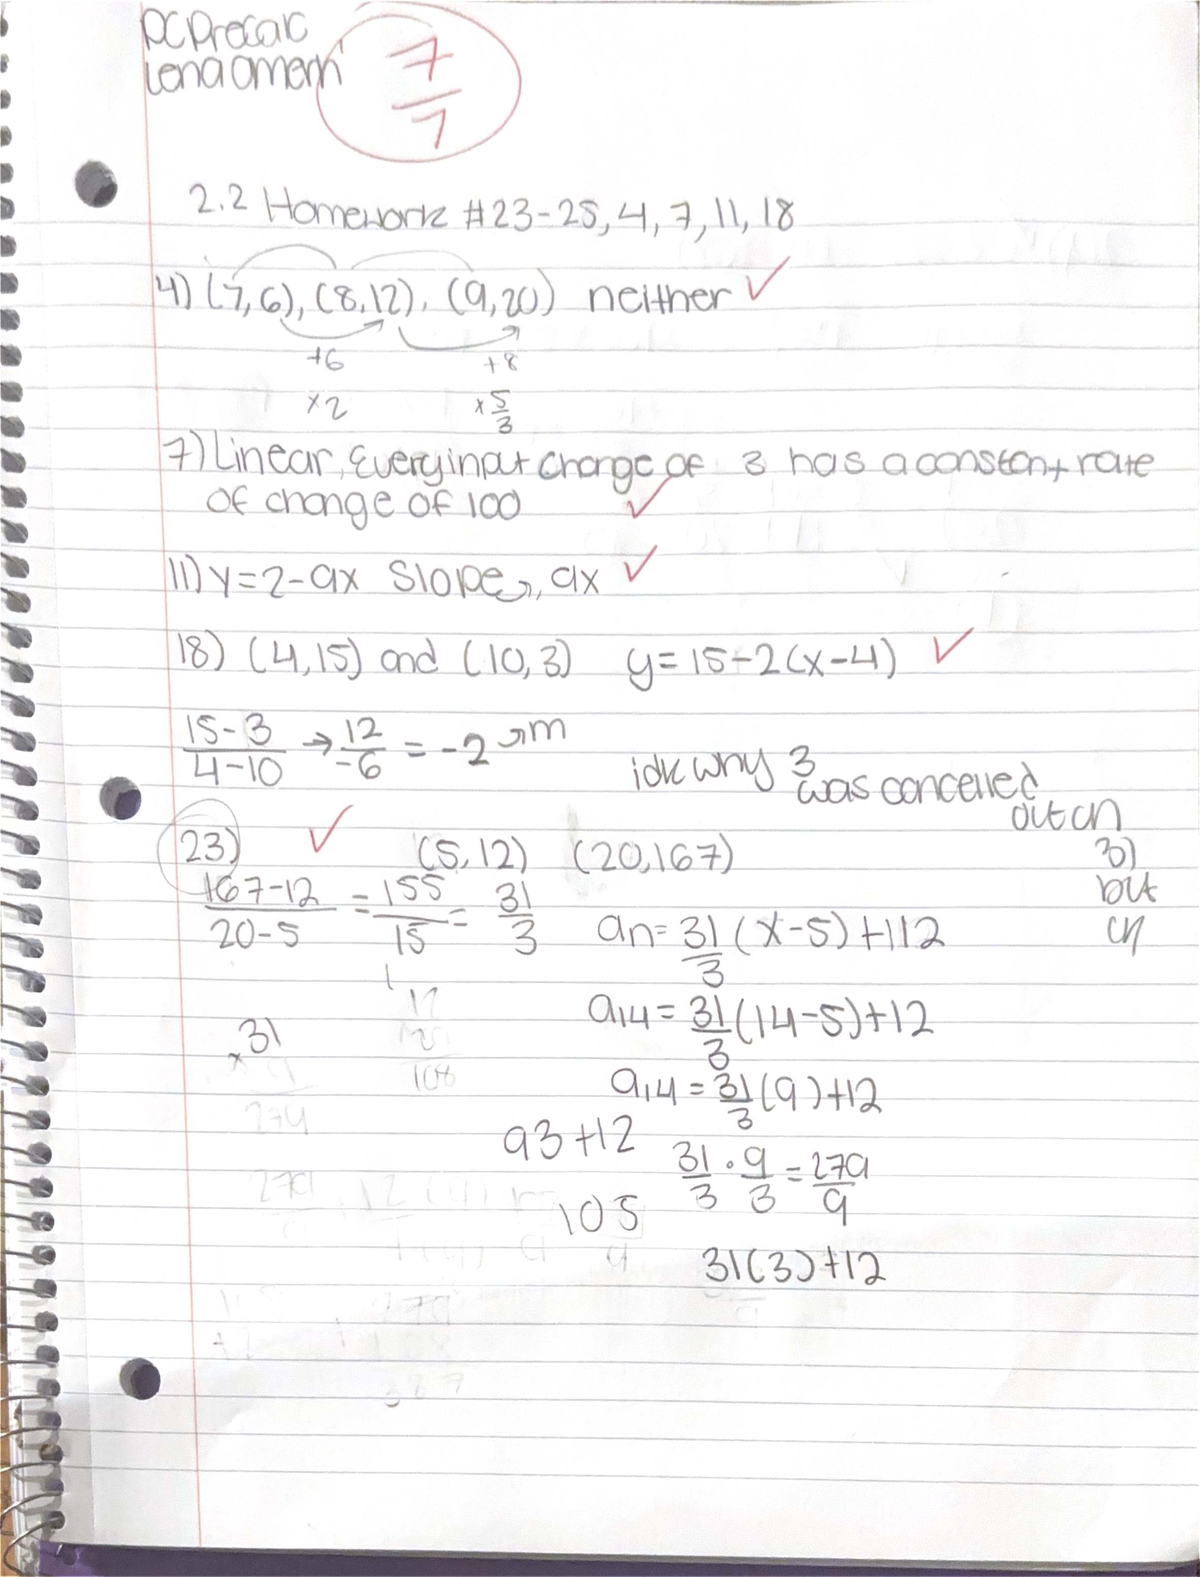 PC Precalc
7/7
2.2 Homework #23-25, 4, 7, 11, 18
4) (7,6), (8,12), (9,20) neither ✓
+6 +8
×2 ×5/3
7) Linear, Every input change of 3 has a constant rate
of change of 100 ✓
11) y=2-9x slope, 9x ✓
18) (4,15) and (10,3) y=15-2(x-4) ✓
15-3/4-10 → 12/-6 = -2 → m
idk why 3
was cancelled
out
23) ✓ (5,12) (20,167)
167-12/20-5 = 155/15 = 31/3
an=31/3(x-5)+112
31
a14=31/3(14-5)+12
×9
108
a14=31/3(9)+12
279
93+12
31/3·9/3=279/9
105
31(3)+12